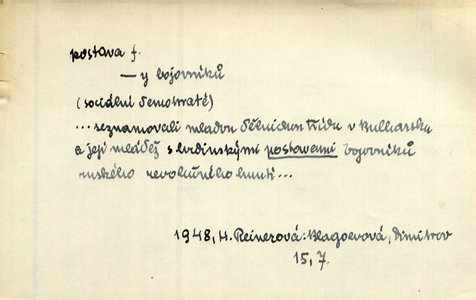 postava f.
— y bojovníků
(sociální demokraté)
... seznamovali mladou dělnickou třídu v Bulharsku
a její mládež s hrdinskými postavami bojovníků
ruského revolučního hnutí ...
1948, H. Reinerová: Blagoevová, Dimitrov
15, 7.